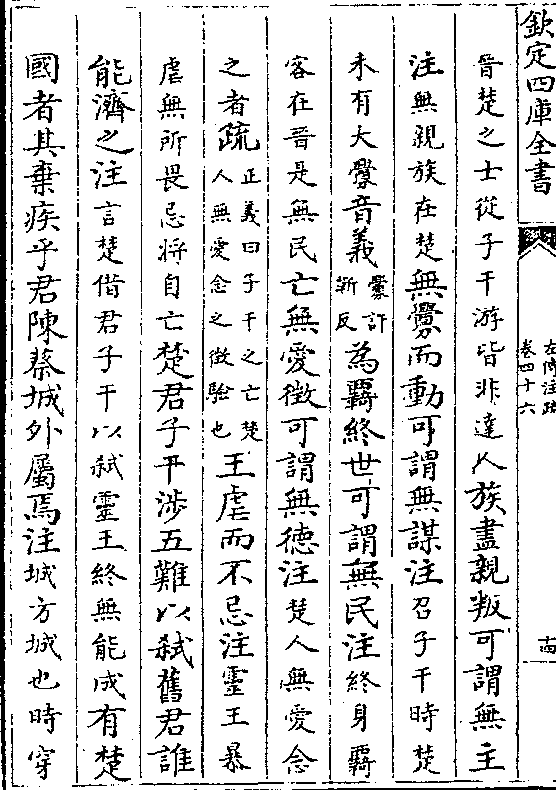 欽定四庫全書
左傳注疏
卷四十六
十四
晉楚之士從子干游皆非達人族盡親叛可謂無主
注無親族在楚無釁而動可謂無謀注召子干時楚
未有大釁音義釁許靳反為羈終世可謂無民注終身羈
客在晉是無民亡無愛徴可謂無德注楚人無愛念
之者疏正義曰子干之亡楚人無愛念之徴驗也王虐而不忌注靈王暴
虐無所畏忌將自亡楚君子干涉五難以弑舊君誰
能濟之注言楚借君子干以弑靈王終無能成有楚
國者其棄疾乎君陳蔡城外屬焉注城方城也時穿